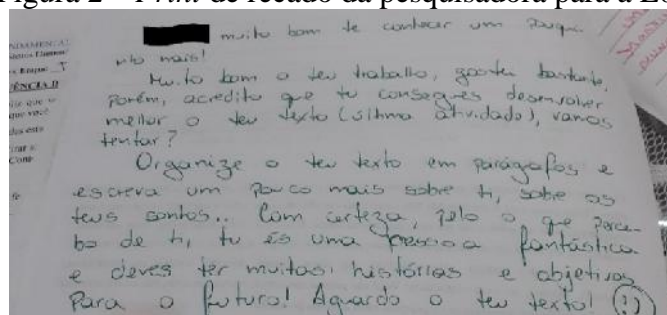 Figura 2 – Print de recado da pesquisadora para a
muito bom te conhecer um pouqui-
nho mais!
Muito bom o teu trabalho, gostei bastante,
porém, acredito que tu consegues desenvolver
melhor o teu texto (última atividade), vamos
tentar?
Organize o teu texto em parágrafos e
escreva um pouco mais sobre ti, sobre os
teus sonhos.. Com certeza, pelo o que perce-
bo de ti, tu és uma pessoa fantástica
e deves ter muitas histórias e objetivos
para o futuro! Aguardo o teu texto! :)